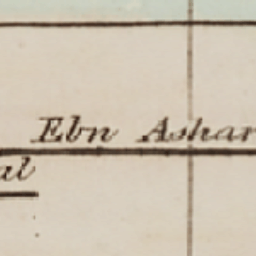 Ebn Ashar
al